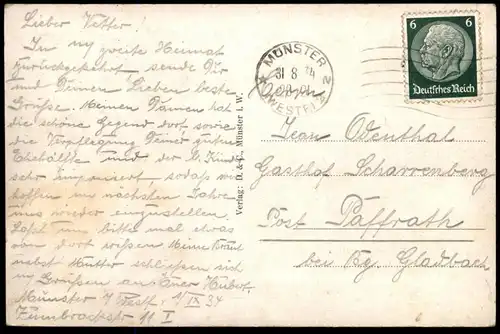 Lieber Vetter!
In m/ zweite Heimat
zurückgekehrt sende Dir
und Deinen Lieben beste
Grüße. Meinen Damen hat
die schöne Gegend dort, sowie
die Verpflegung Deiner guten
Ehehälfte und der Kinder
sehr imponiert, sodass wir
hoffen, im nächsten Jahre
uns wieder einzustellen.
Laßt uns bitte mal etwas
von dort wissen. Meine Braut
nebst Mutter schließen sich
m/ Grüßen an. Euer Hubert.
Münster / Westf., 1/IX 34
11 I
Verlag: D. & L., Münster i. W.
MÜNSTER 2
31 8 34
(WESTF)
6 6
Deutsches Reich
Jean Odenthal
Gasthof Scharrenberg
Post Paffrath
bei Bg. Gladbach